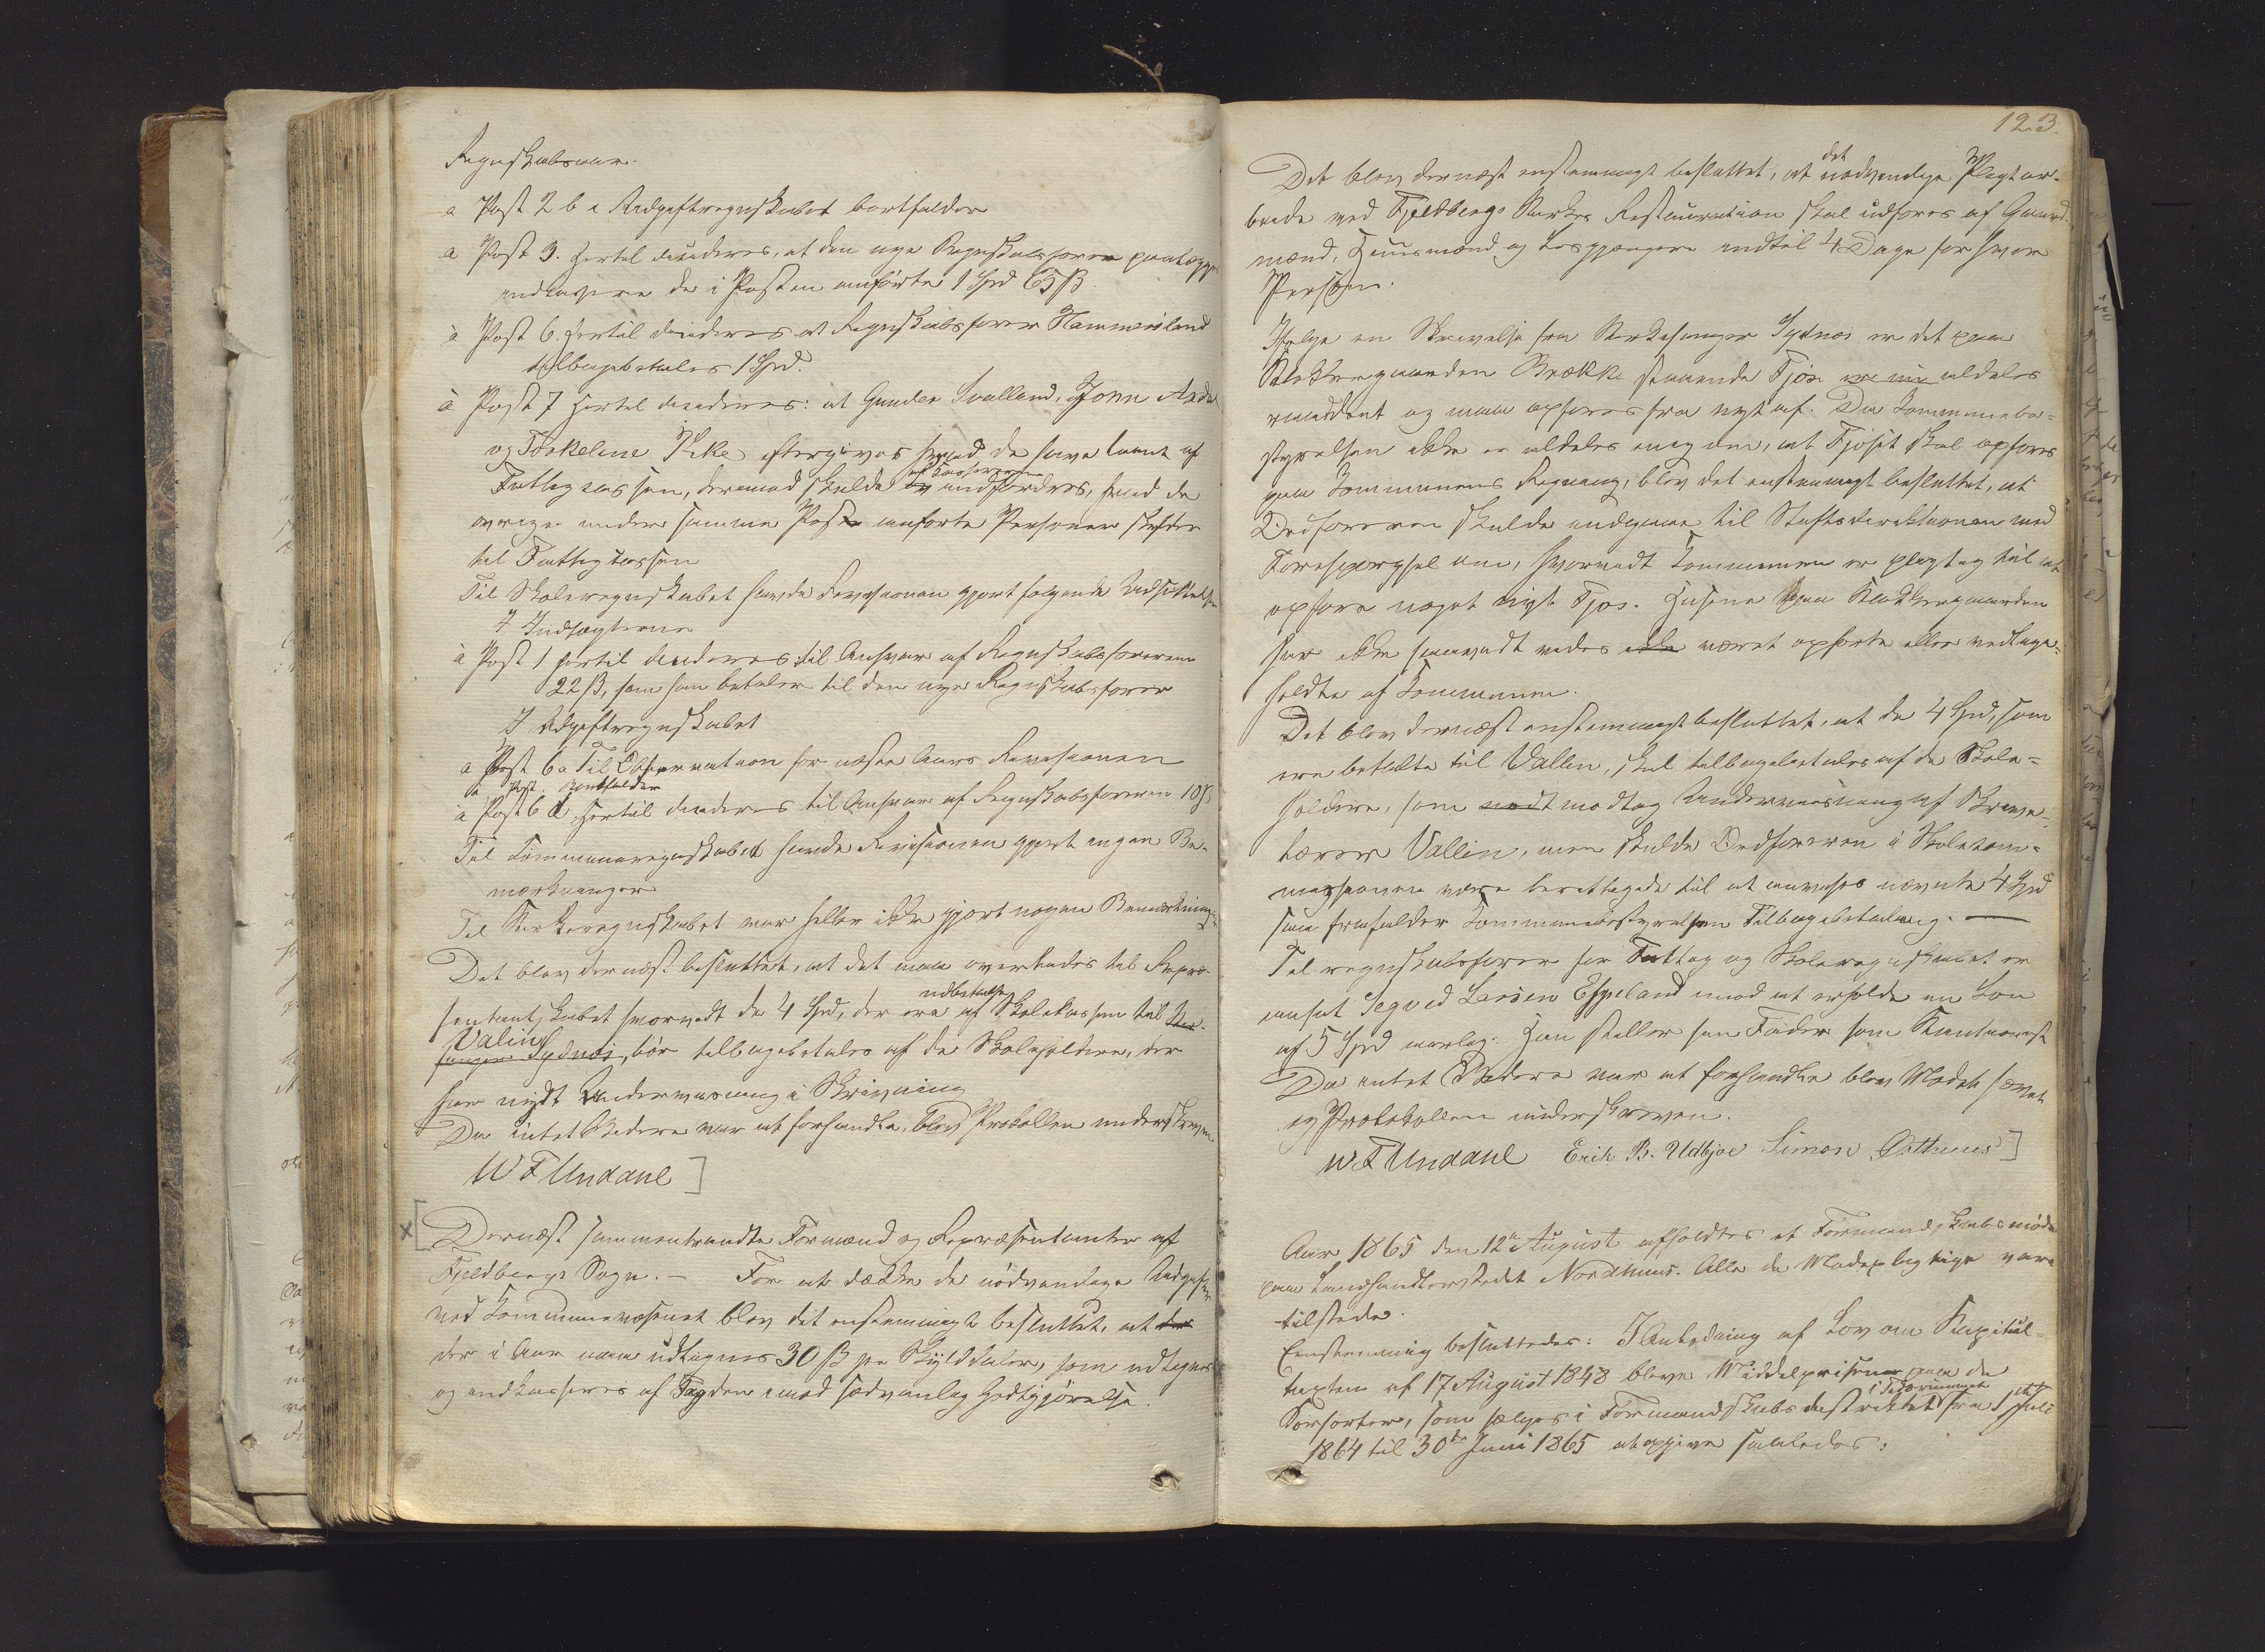 Regnskabsaar.
a Post 2 b i Udgiftregnskabet bortfalder
a Post 3. hertil decideres, at den nye Regnskabsfører paalægges
indcassere de i Posten anførte 1 Spd 65 ß.
à Post 6. hertil decideres at Regnskabsfører Hammersland
tilbagebetales 1 Spd.
à Post 7 hertil decideres: at Gunder Svalland, John
og Torkeline eftergives hvad de have laant af
Fattigcassen, derimod skulde af Kassereren indfordres, hvad de
øvrige under samme Post anførte Personer skylder
til Fattigcassen
Til Skoleregnskabet havde Revisionen gjort følgende Udsættelser
I Indtægterne
à Post 1 hertil decideres til Ansvar af Regnskabsføreren
22 ß, som han betaler til den nye Regnskabsfører
I Udgiftregnskabet
a Post 6 a Til Observation for næste Aars Revisionen
a Post. bortfalder
à Post 6 d hertil decideres til Ansvar af Regnskabsføreren 10 ß
Til Kommuneregnskabet havde Revisionen gjort ingen Be-
mærkninger
Til Kirkeregnskabet var heller ikke gjort nogen Bemærkning
Det blev dernæst besluttet, at det maa overlades til Repræ-
sentantskabet hvorvidt de 4 Spd, der ere udbetalte af Skolekassen til Kir-
Valin
sanger Sydnæs, bør tilbagebetales af de Skoleholdere, der
har nydt Underviisning i Skrivning
Da intet Videre var at forhandle, blev Protokollen underskreven
W F Undahl ]
x [ Dernæst sammentraadte Formænd og Repræsentanter af
Fjeldbergs Sogn. – For at dække de nødvendige Udgifter
ved Kommunevæsenet blev det enstemmigt besluttet, at der
der i Aar maa udlignes 30 ß pr Skylddaler, som udlignes
og indkasseres af Fogden imod sædvanlig Godtgjørelse.
123.
Det blev dernæst enstemmigt besluttet, at det nødvendige Pligtar-
beide ved Fjeldbergs Kirkes Restauration skal udføres af Gaard-
mænd, Huusmænd og Losgjængere indtil 4 Dage for hver
Person.
Ifølge en Skrivelse fra Kirkesanger Sydnæs er det paa
Klokkergaarden Brække staaende Fjøs aldeles
raaddent og maa opføres fra nyt af. Da Kommunebe-
styrelsen ikke er aldeles enig om, at Fjøset skal opføres
paa Kommunens Regning, blev det enstemmigt besluttet, at
Ordføreren skulde indgaae til Stiftsdirektionen med
Forespørgsel om, hvorvidt Kommunen er pligtig til at
opføre noget nyt Fjøs. Husene paa Klokkergaarden
har ikke saavidt vides ikke været opførte eller vedlige-
holdte af Kommunen.
Det blev dernæst enstemmigt besluttet, at de 4 Spd, som
ere betalte til Vallin, skal tilbagebetales af de Skole-
holdere, som modtog Underviisning af Skrive-
lærer Vallin, men skulde Ordføreren i Skolekom-
missionen være berettiget til at anvises nævnte 4 Spd
saa frafalder Kommunebestyrelsen Tilbagebetaling. —
Til regnskabsfører for Fattig og Skoleregnskabet er
ansat Segvid Larsen Espeland imod at erholde en Løn
af 5 Spd aarlig. Han stiller sin Fader som Kautionist
Da intet Videre var at forhandle blev Mødet hævet
og Protokollen underskreven.
W F Undahl Erik B. Udbjoe Simon Østhuus ]
Aar 1865 den 12te August afholdtes et Formandskabsmøde
paa Landhandlerstedet Nordhuus. Alle de Mødepligtige vare
tilstede.
Eenstemmig besluttedes: I Anledning af Lov om Kapitel-
taxten af 17 August 1848 bleve Middelpriserne paa de
Kornsorter, som sælges i Formandskabsdistriktet i Tidsrummet fra 1ste Juli
1864 til 30te Juni 1865 at opgive saaledes: